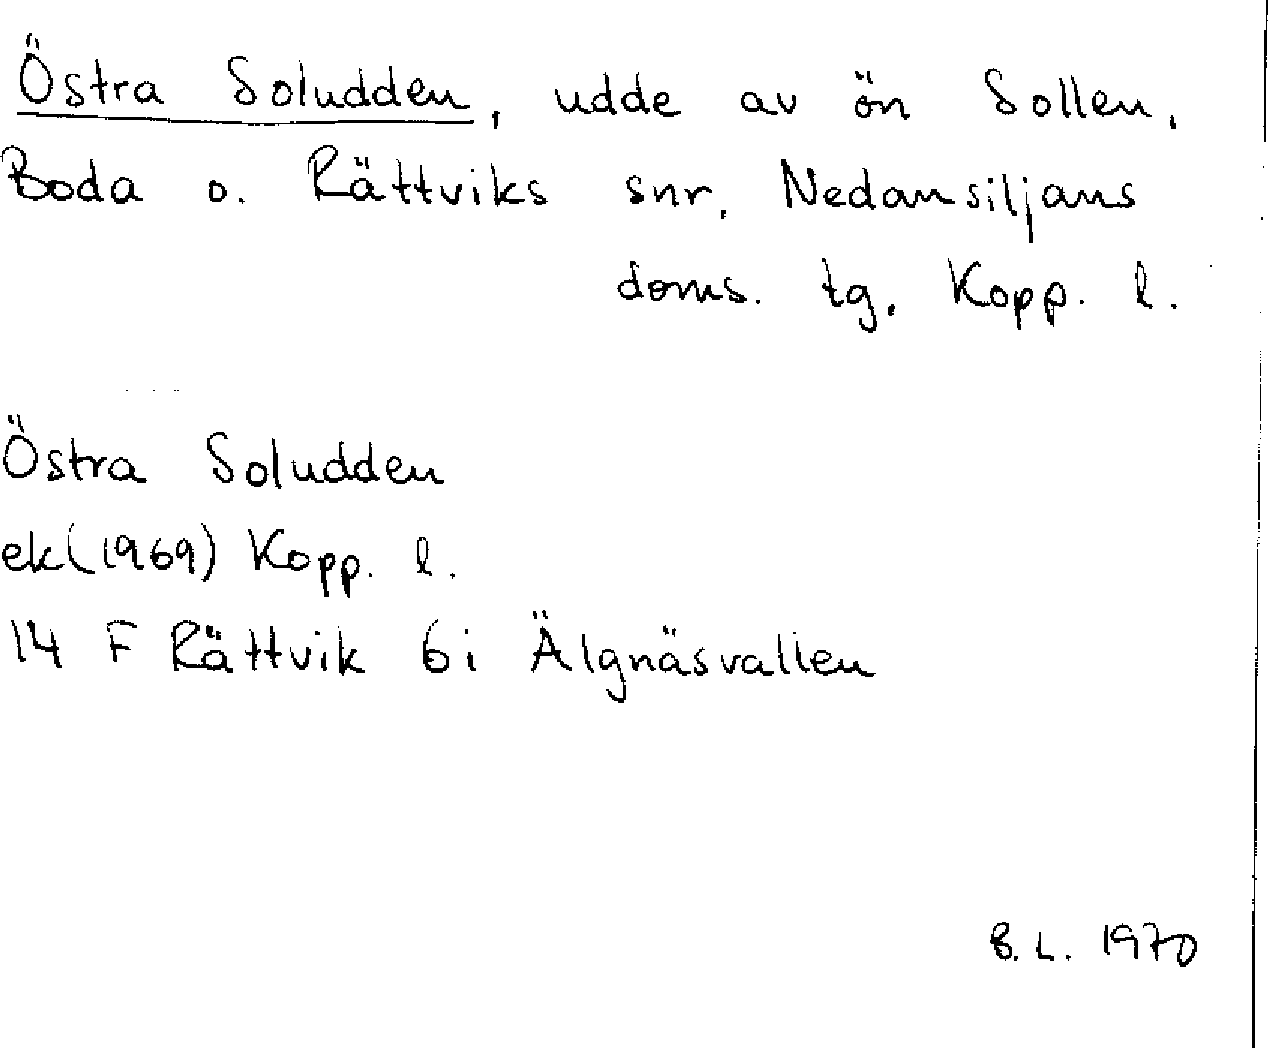 Östra Soludden, udde av ön Sollen,
Boda o. Rättviks snr, Nedansiljans
doms. tg, Kopp. l.
Östra Soludden
ek(1969) Kopp. l.
14 F Rättvik 6i Älgnäsvallen
B. L. 1970